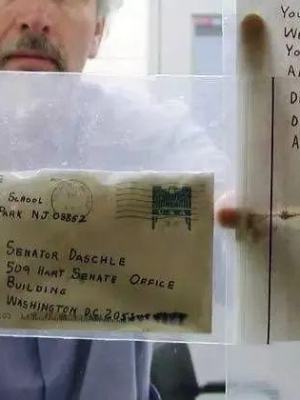 SCHOOL
PARK NJ 08852
USA
SENATOR DASCHLE
509 HART SENATE OFFICE
BUILDING
WASHINGTON D.C. 205
YO
WE
YO
A
D
D
A